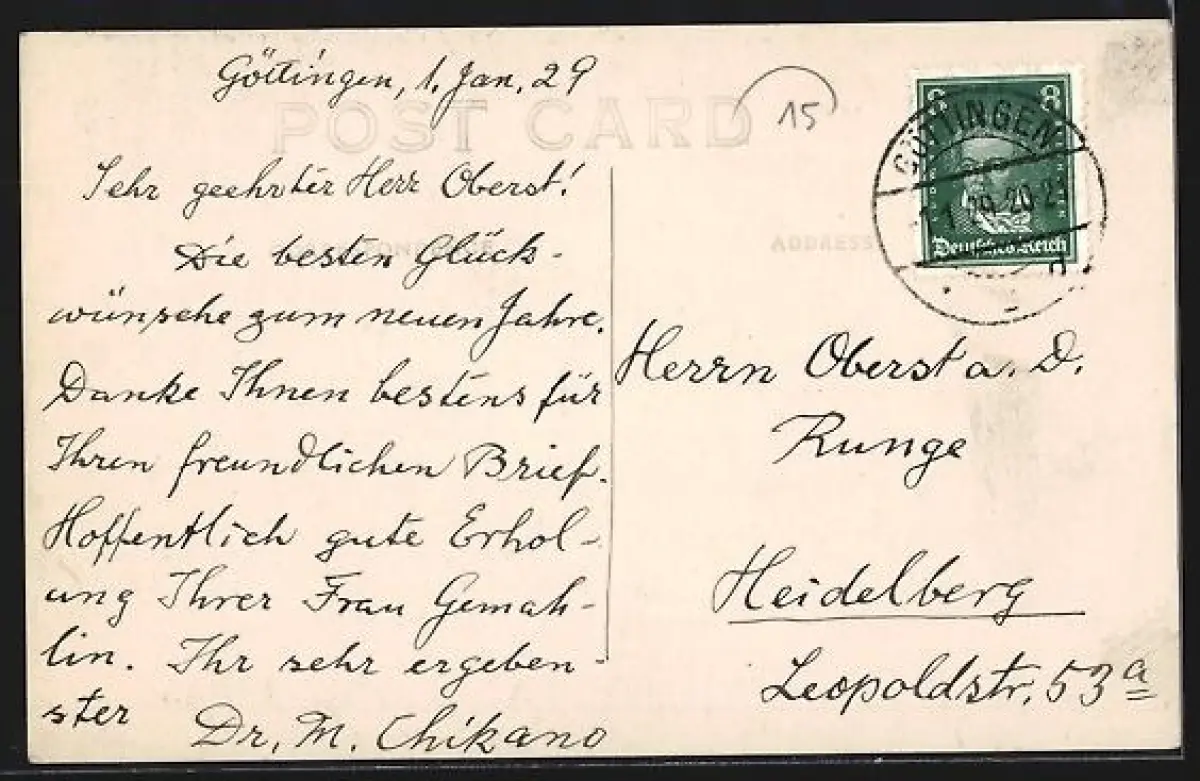 Göttingen, 1. Jan. 29
POST CARD
15
Sehr geehrter Herr Oberst!
Die besten Glück-
wünsche zum neuen Jahre.
Danke Ihnen bestens für
Ihren freundlichen Brief.
Hoffentlich gute Erhol-
ung Ihrer Frau Gemah-
lin. Ihr sehr ergeben-
ster
Dr. M. Chikano
8 8
Deutsches Reich
GÖTTINGEN
1.1.29.20-21
d
ADDRESS
Herrn Oberst a. D.
Runge
Heidelberg
Leopoldstr. 53a